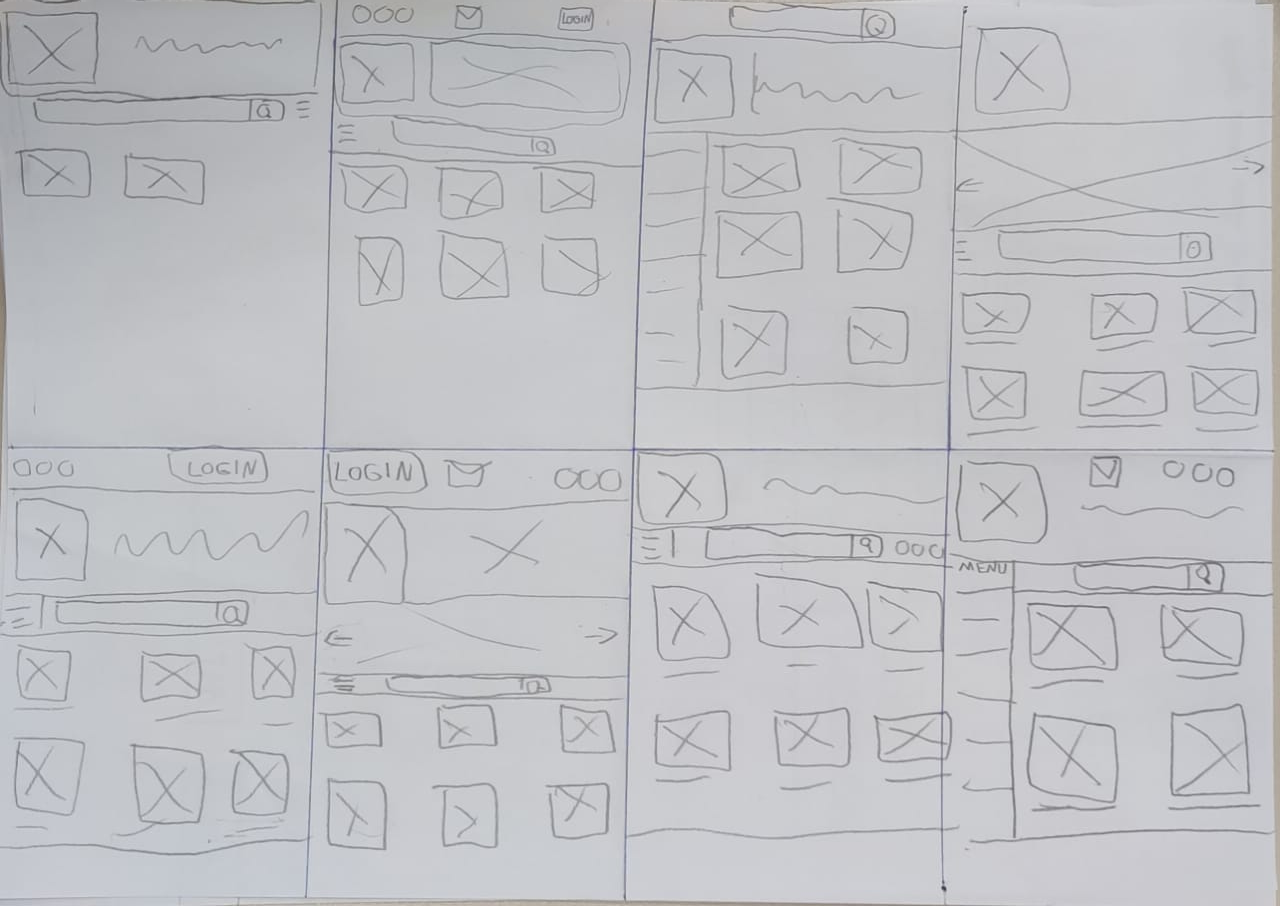 LOGIN
LOGIN
LOGIN
MENU